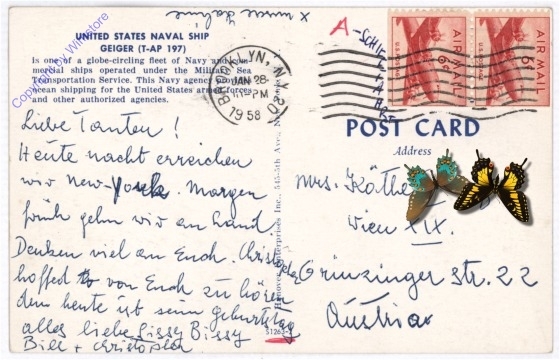 x nurse
UNITED STATES NAVAL SHIP
GEIGER (T-AP 197)
Is one of a globe-circling fleet of Navy and com-
mercial ships operated under the Military Sea
Transportation Service. This Navy agency provides
ocean shipping for the United States armed forces
and other authorized agencies.
Copyright by Winstore
BROOKLYN, N.Y.
JAN 28
PM
1958
A-SCHIFFFAHRT
AIR MAIL
6¢
U.S. POSTAGE
AIR MAIL
6¢
U.S. POSTAGE
POST CARD
Address
Liebe Tanten!
Heute nacht erreichen
wir New-York. Morgen
früh gehn wir an Land
Denken viel an Euch. Christoph
hofft von Euch zu hören
denn heute ist sein Geburtstag
alles liebe Sissy Bissy
Bill + Christoph
Enterprises Inc., 545-5th Ave.,
51263
Mrs. Käthe
Wien XIX.
Grinzinger Str. 22
Austria